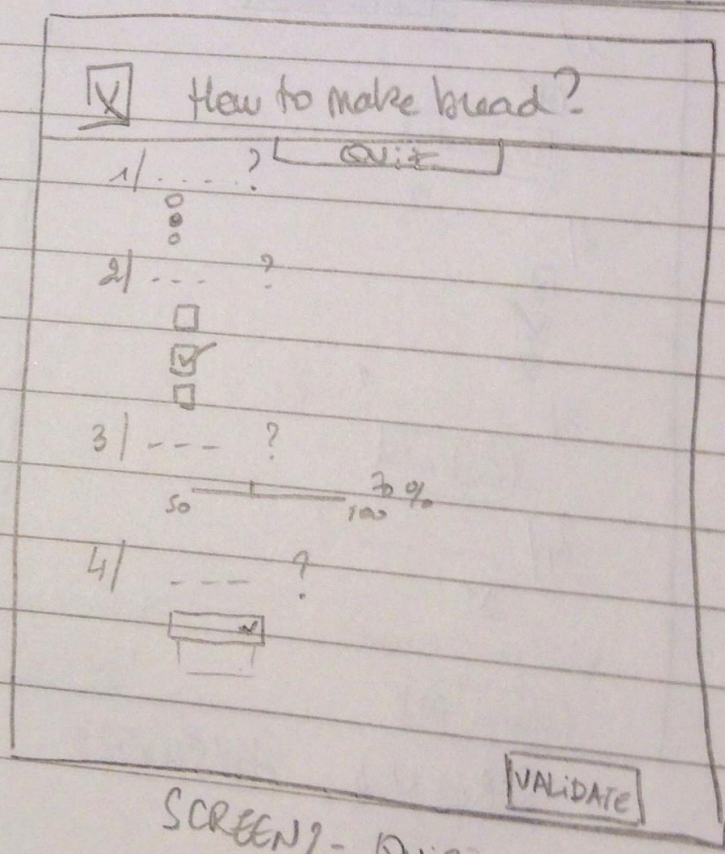 X How to make bread?
Quiz
1/ .....?
2/ --- ?
3/ --- ?
50 100 70 %
4/ --- ?
VALIDATE
SCREEN2-